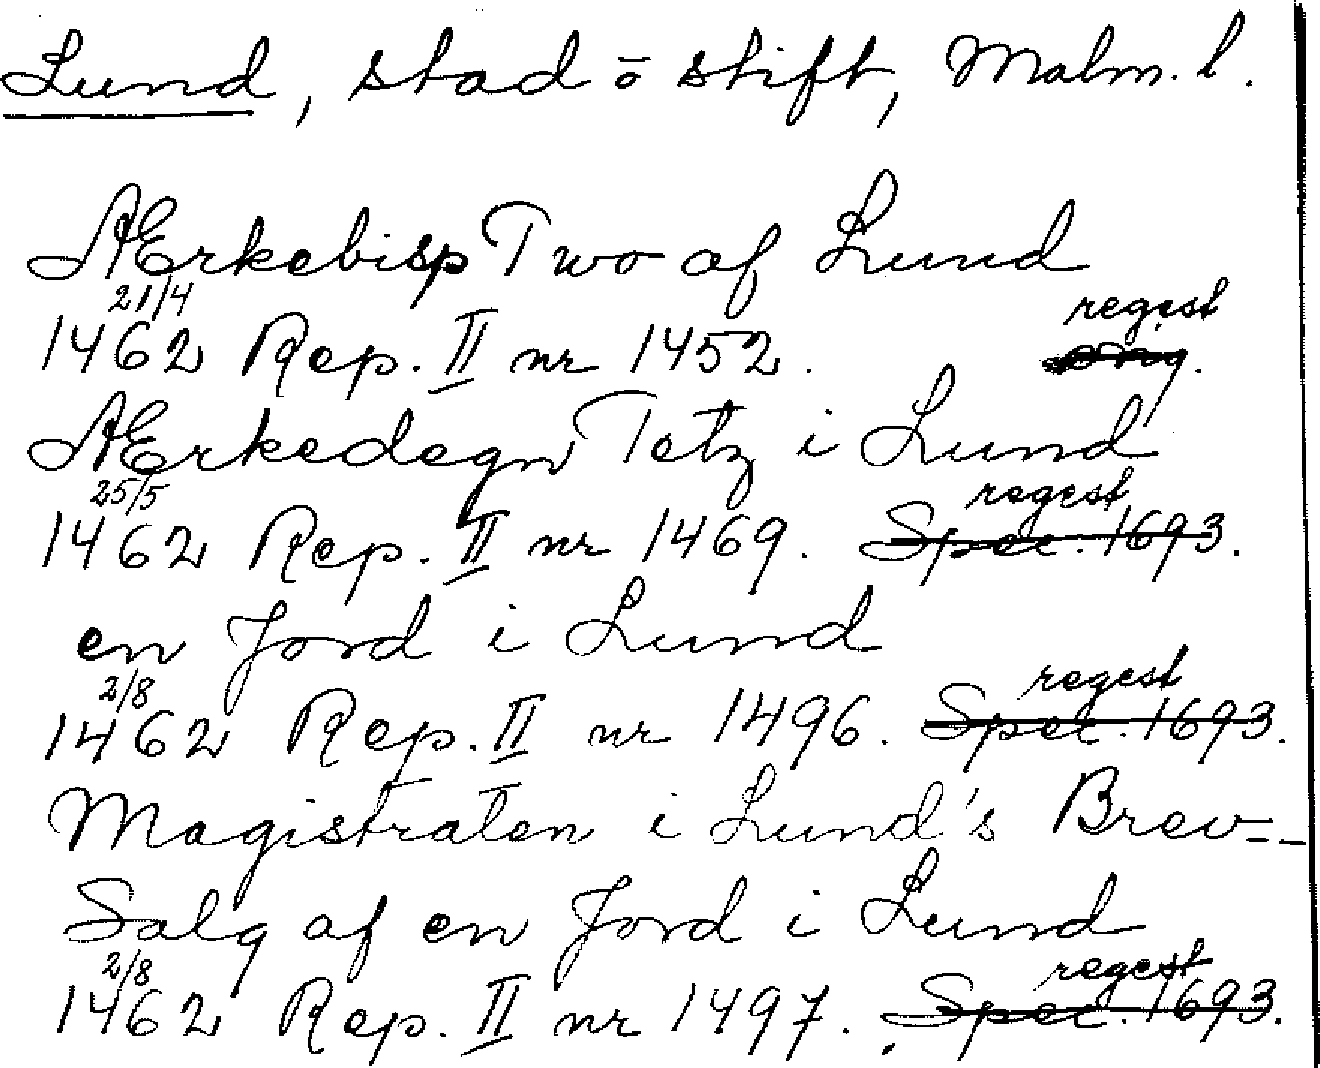 Lund, stad o stift, Malm. l.
Ærkebisp Two af Lund
21/4 regest
1462 Rep. II nr 1452. orig.
Ærkedegn Tetz i Lund
25/5 regest
1462 Rep. II nr 1469. Spec. 1693.
en Jord i Lund
2/8 regest
1462 Rep. II nr 1496. Spec. 1693.
Magistraten i Lund's Brev=-
Salg af en Jord i Lund
2/8 regest
1462 Rep. II nr 1497. Spec. 1693.